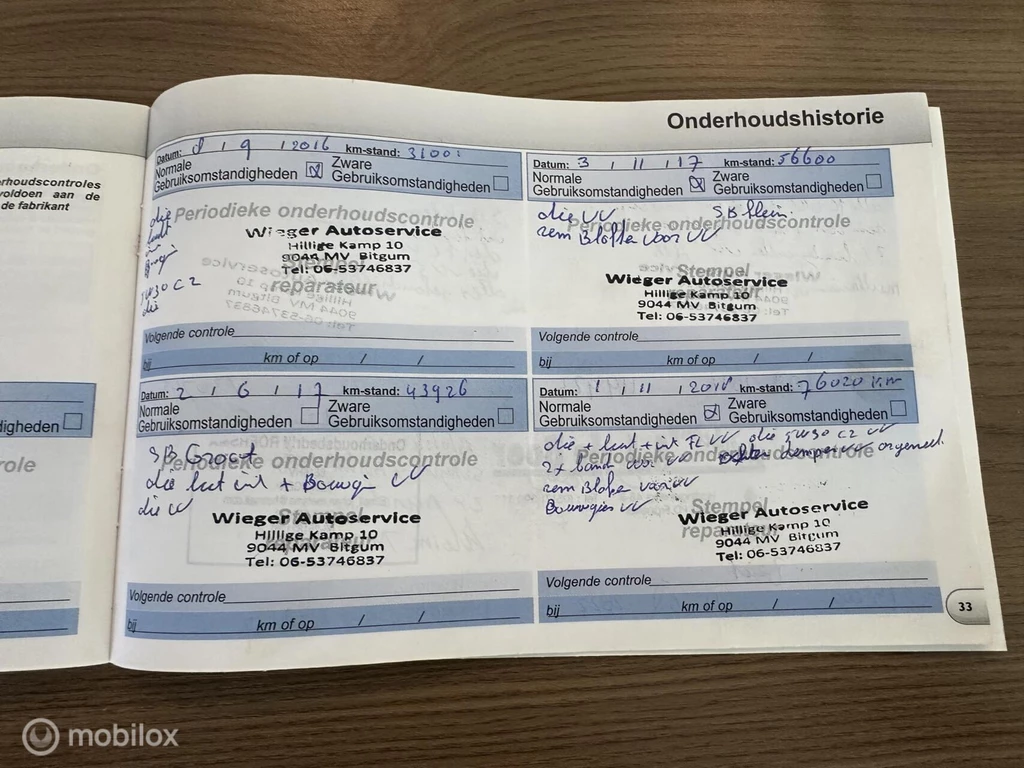 Onderhoudshistorie
rhoudscontroles
voldoen aan de
de fabrikant
digheden
role
Datum: 8 / 9 / 2016 km-stand: 31001
Normale
Gebruiksomstandigheden
Zware
Gebruiksomstandigheden
Periodieke onderhoudscontrole
olie
5W30 C2
olie
Wieger Autoservice
Hillige Kamp 10
9044 MV Bitgum
Tel: 06-53746837
Stempel
reparateur
Volgende controle
bij km of op / /
Datum: 3 / 11 / 17 km-stand: 56600
Normale
Gebruiksomstandigheden
Zware
Gebruiksomstandigheden
olie VV SB klein
rem Blokken voor VV
Periodieke onderhoudscontrole
Stempel
reparateur
Wieger Autoservice
Hillige Kamp 10
9044 MV Bitgum
Tel: 06-53746837
Volgende controle
bij km of op / /
Datum: 2 / 6 / 17 km-stand: 43926
Normale
Gebruiksomstandigheden
Zware
Gebruiksomstandigheden
SB Groot
Periodieke onderhoudscontrole
olie lucht int + Bougie VV
olie VV
Stempel
Wieger Autoservice
Hillige Kamp 10
9044 MV Bitgum
Tel: 06-53746837
Volgende controle
bij km of op / /
Datum: 1 / 11 / 2018 km-stand: 76020 km
Normale
Gebruiksomstandigheden
Zware
Gebruiksomstandigheden
olie + lucht + int FL VV olie 5W30 C2 VV
2x band voor VV demper
Periodieke onderhoudscontrole
rem Blokken voor VV
Bougies VV
Stempel
reparateur
Wieger Autoservice
Hillige Kamp 10
9044 MV Bitgum
Tel: 06-53746837
Volgende controle
bij km of op / /
33
mobilox